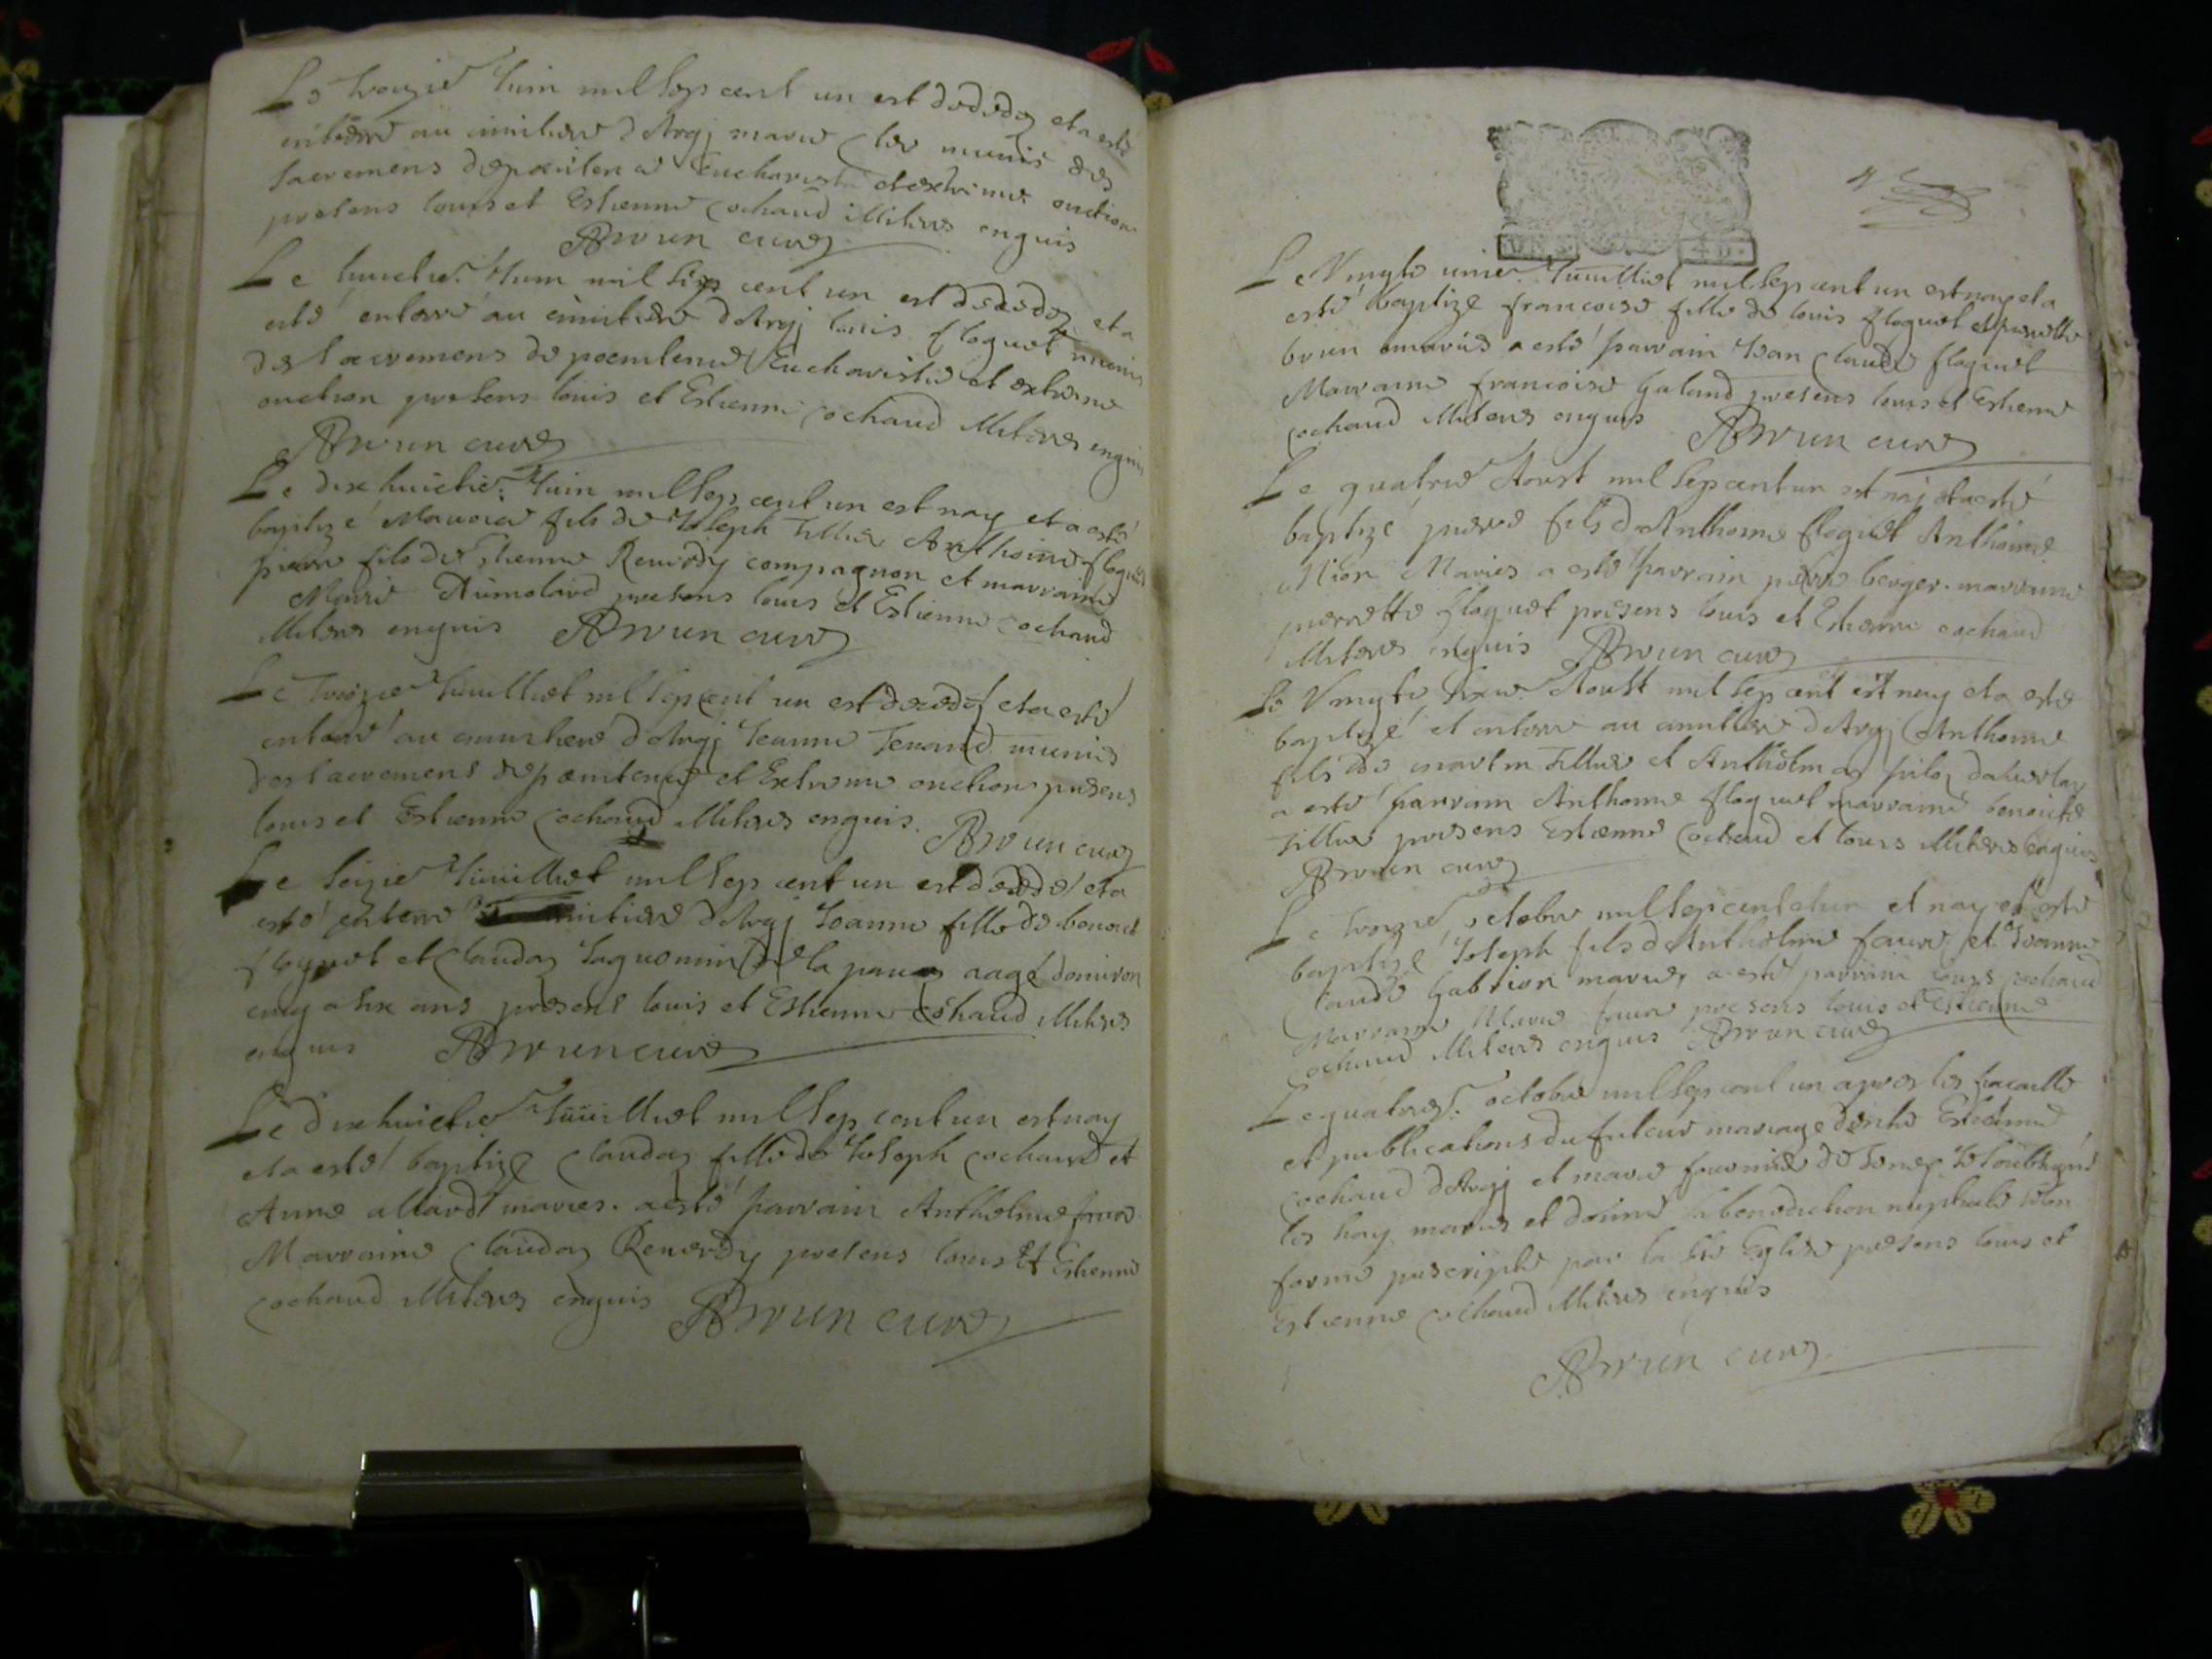 Le Treizie Juin mil sept cent un est decedez et a esté
enterré au cimitiere d'Argj marie munie des
sacremens de pœnitence Eucharistie et extreme onction
presens louis et Estienne Cochaud illiteres enquis
ABrun curez
Le huictie. Juin mil sept cent un est decedez et a
esté enterré au cimitiere d'Argj louis floquet munis
des sacremens de poenitence Eucharistie et extreme
onction presens louis et Estienne Cochaud illiteres enquis
ABrun curez
Le dixhuictie. Juin mil sept cent un est nay et a esté
baptizé fils de Joseph Tillier Anthoine floquet
pierre fils d'Estienne Reverdy compagnon et marraine
Marie presens louis et Estienne Cochaud
illiteres enquis ABrun curez
Le Treizie Juilliet mil sept cent un est decedez et a esté
enterré au cimitiere d'Argj Jeanne munie
des sacremens de pœnitence et Extreme onction presens
louis et Estienne Cochaud illiteres enquis. ABrun curez
Le seizie Juilliet mil sept cent un est decedé et a
esté enterré cimitiere d'Argj Jeanne fille de benoict
floquet et Claudaz Jaquemin de la aagé denviron
cinq a six ans presens louis et Estienne Cochaud illiteres
enquis ABrun curez
Le dixhuictie Juilliet mil sept cent un est nay
et a esté baptizé Claudaz fille de Joseph Cochaud et
Anne allard maries. a esté parrain Anthelme faure
Marraine Claudaz Reverdy presens louis et Estienne
Cochaud illiteres enquis ABrun curez
Le Vingte unie. Juilliet mil sept cent un est nay et a
esté baptizé francoise fille de louis floquet et pierrette
brun maries a esté parrain Jean Claude floquet
Marraine francoise Galand presens louis et Estienne
Cochaud illiteres enquis ABrun curez
Le quatrie Aoust mil sept cent un est naj et a esté
baptizé pierre fils d'Anthoine floquet Anthoine
Mion Maries a esté parrain pierre berger. marraine
pierrette floquet presens louis et Estienne cochaud
illiteres enquis ABrun curez
Le Vingte Aoust mil sept cent est nay et a esté
baptizé et enterré au cimitiere d'Argj Anthoine
fils de martin Tillier et Anthelmaz
a esté parrain Anthoine floquet marraine benoicte
Tillier presens Estienne Cochaud et louis illiteres enquis
ABrun curez
Le octobre mil sept cent et un et nay et esté
baptizé Joseph fils d'Anthelme faure et Jeanne
Claude Gabtion maries a esté parrain louis cochaud
Marraine Marie faure presens louis et Estienne
cochaud illiteres enquis ABrun curez
Le quatrie. octobre mil sept cent un apres les fiancailles
et publications du futeur mariage d'entre Estienne
cochaud d'Argj et marie de Je soubsigné
les hay maries et donné la benediction nuptiale selon
forme prescripte par la Ste Eglise presens louis et
Estienne Cochaud illiteres enquis
ABrun curez